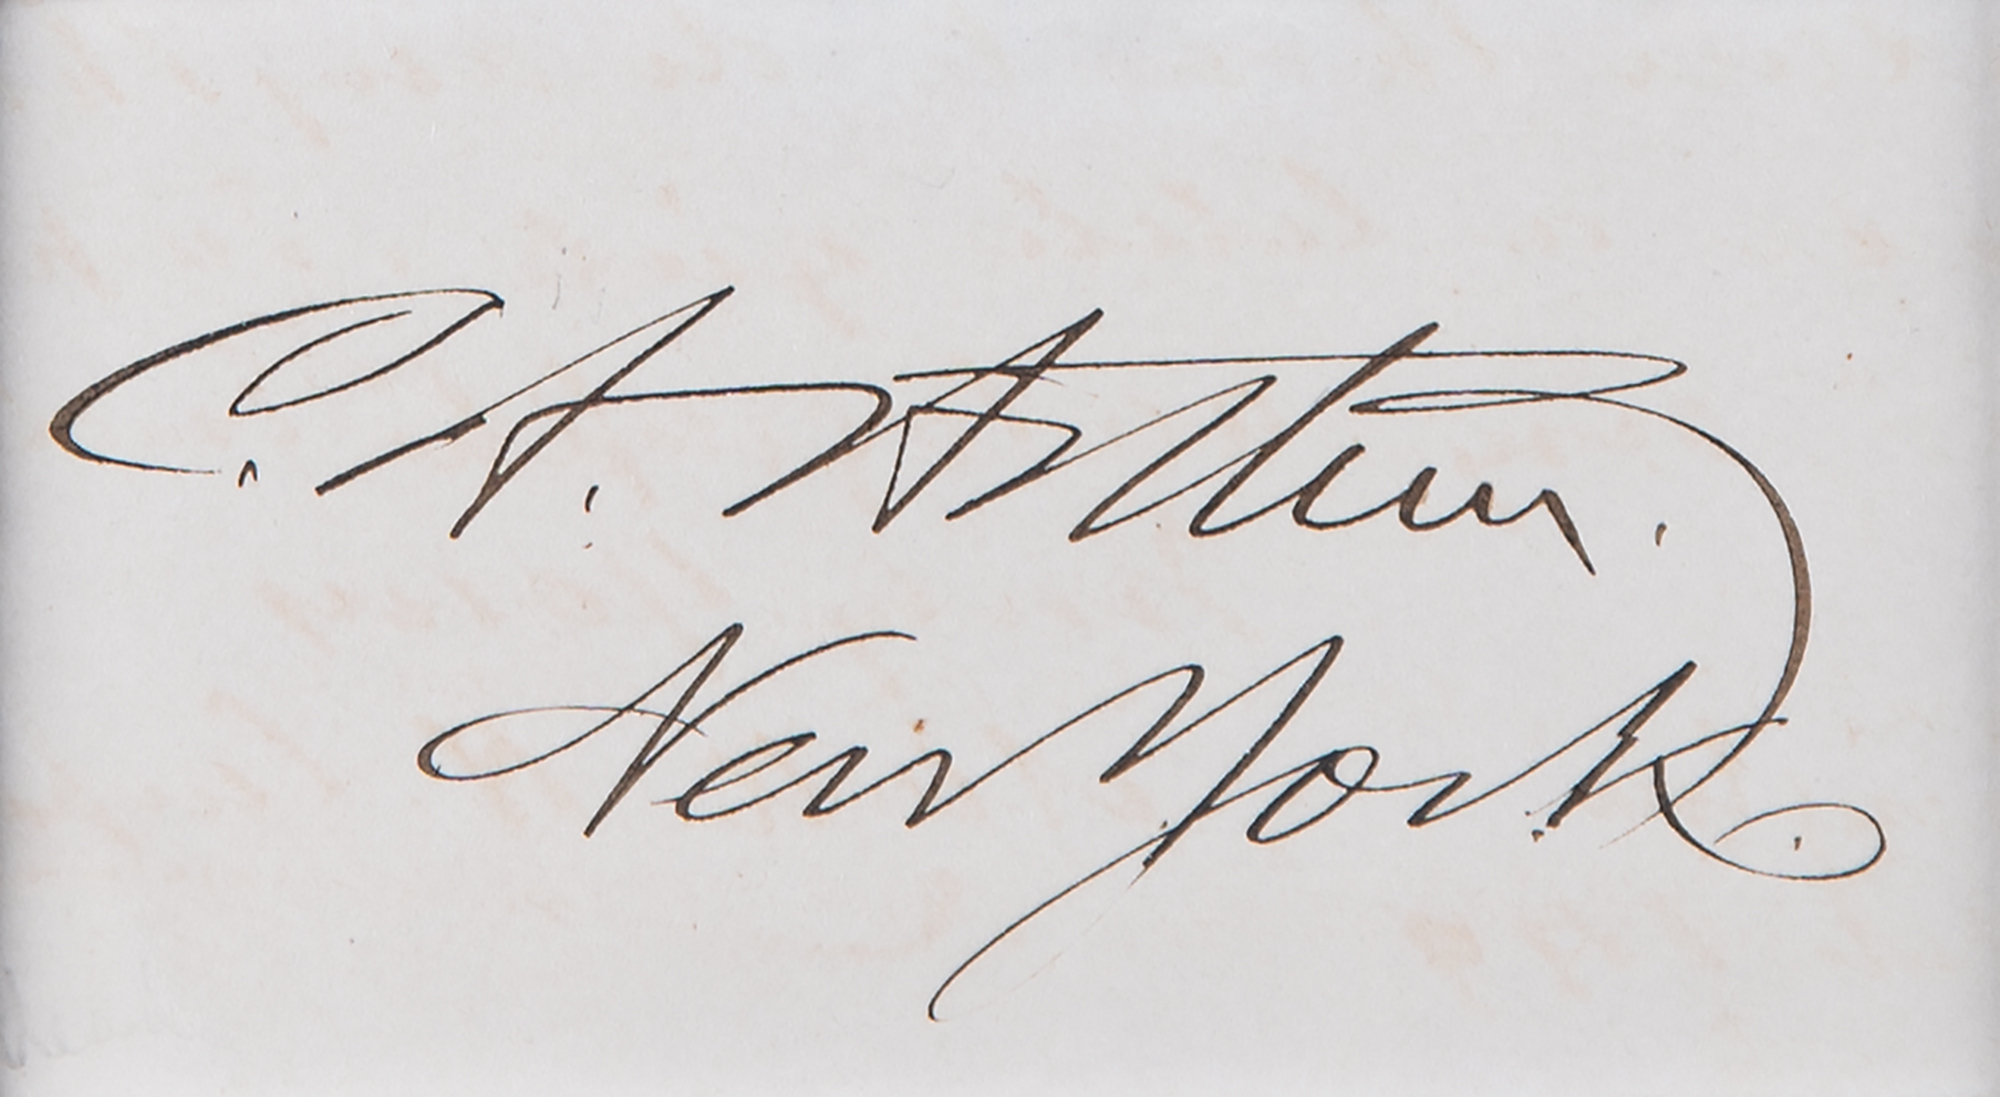 C. A. Arthur.
New York.